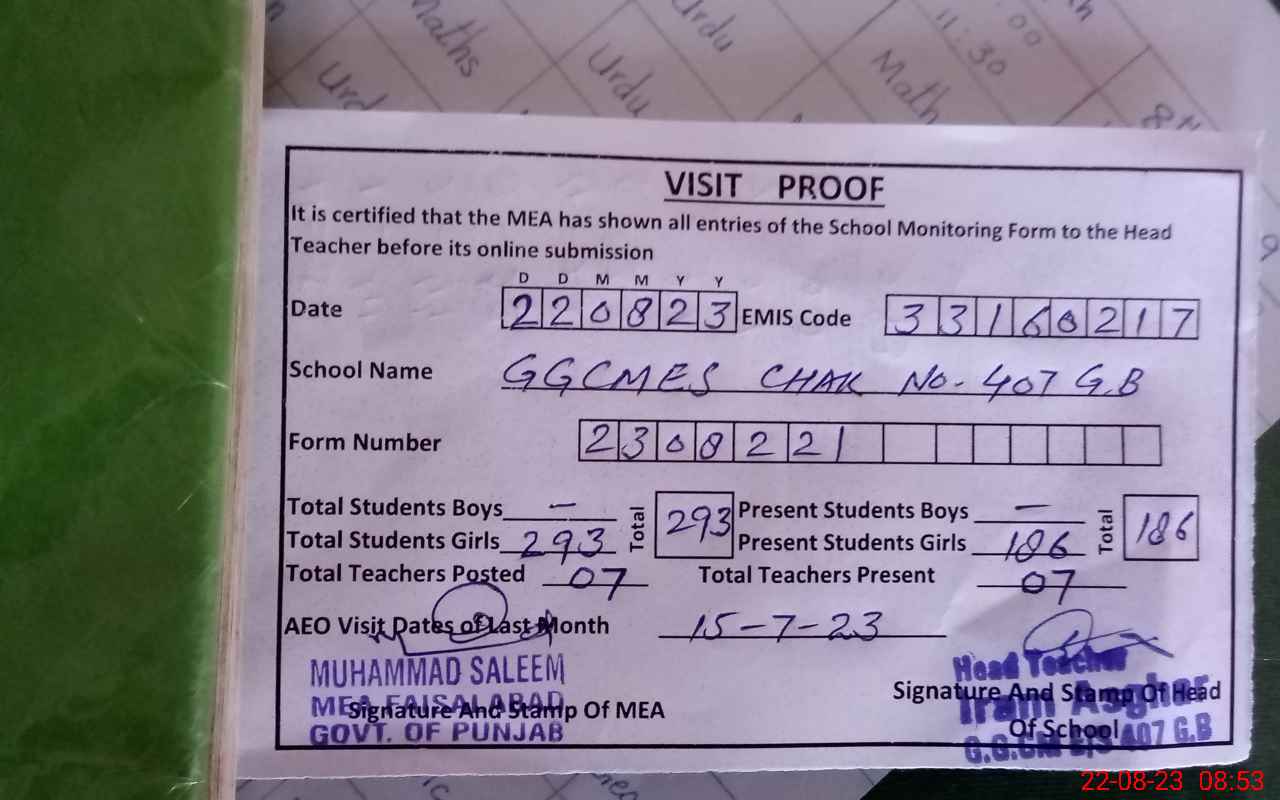 Maths
Urdu
Urdu
Urdu
11:30
Math
VISIT PROOF
It is certified that the MEA has shown all entries of the School Monitoring Form to the Head
Teacher before its online submission
D D M M Y Y
Date 220823 EMIS Code 33160217
School Name GGCMES CHAK No. 407 G.B
Form Number 2308221
Total Students Boys — Total 293 Present Students Boys — Total 186
Total Students Girls 293 Present Students Girls 186
Total Teachers Posted 07 Total Teachers Present 07
AEO Visit Dates of Last Month 15-7-23
MUHAMMAD SALEEM
MEA FAISALABAD
GOVT. OF PUNJAB
Signature And Stamp Of MEA
Head Teacher
Iram Asghar
G.G.CM E/S 407 G.B
Signature And Stamp Of Head
Of School
22-08-23 08:53